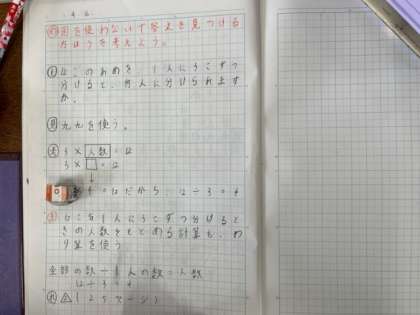 図を使わないで答えを見つける
方ほうを考えよう。
12このあめを 1人に3こずつ
分けると、何人に分けられます
か。
九九を使う。
3×人数=12
3×□=12
↓
4=12だから、12÷3=4
12こを1人に3こずつ分けると
きの人数をもとめる計算も、わ
り算を使う
全部の数÷1人の数=人数
12÷3=4
(25ページ)